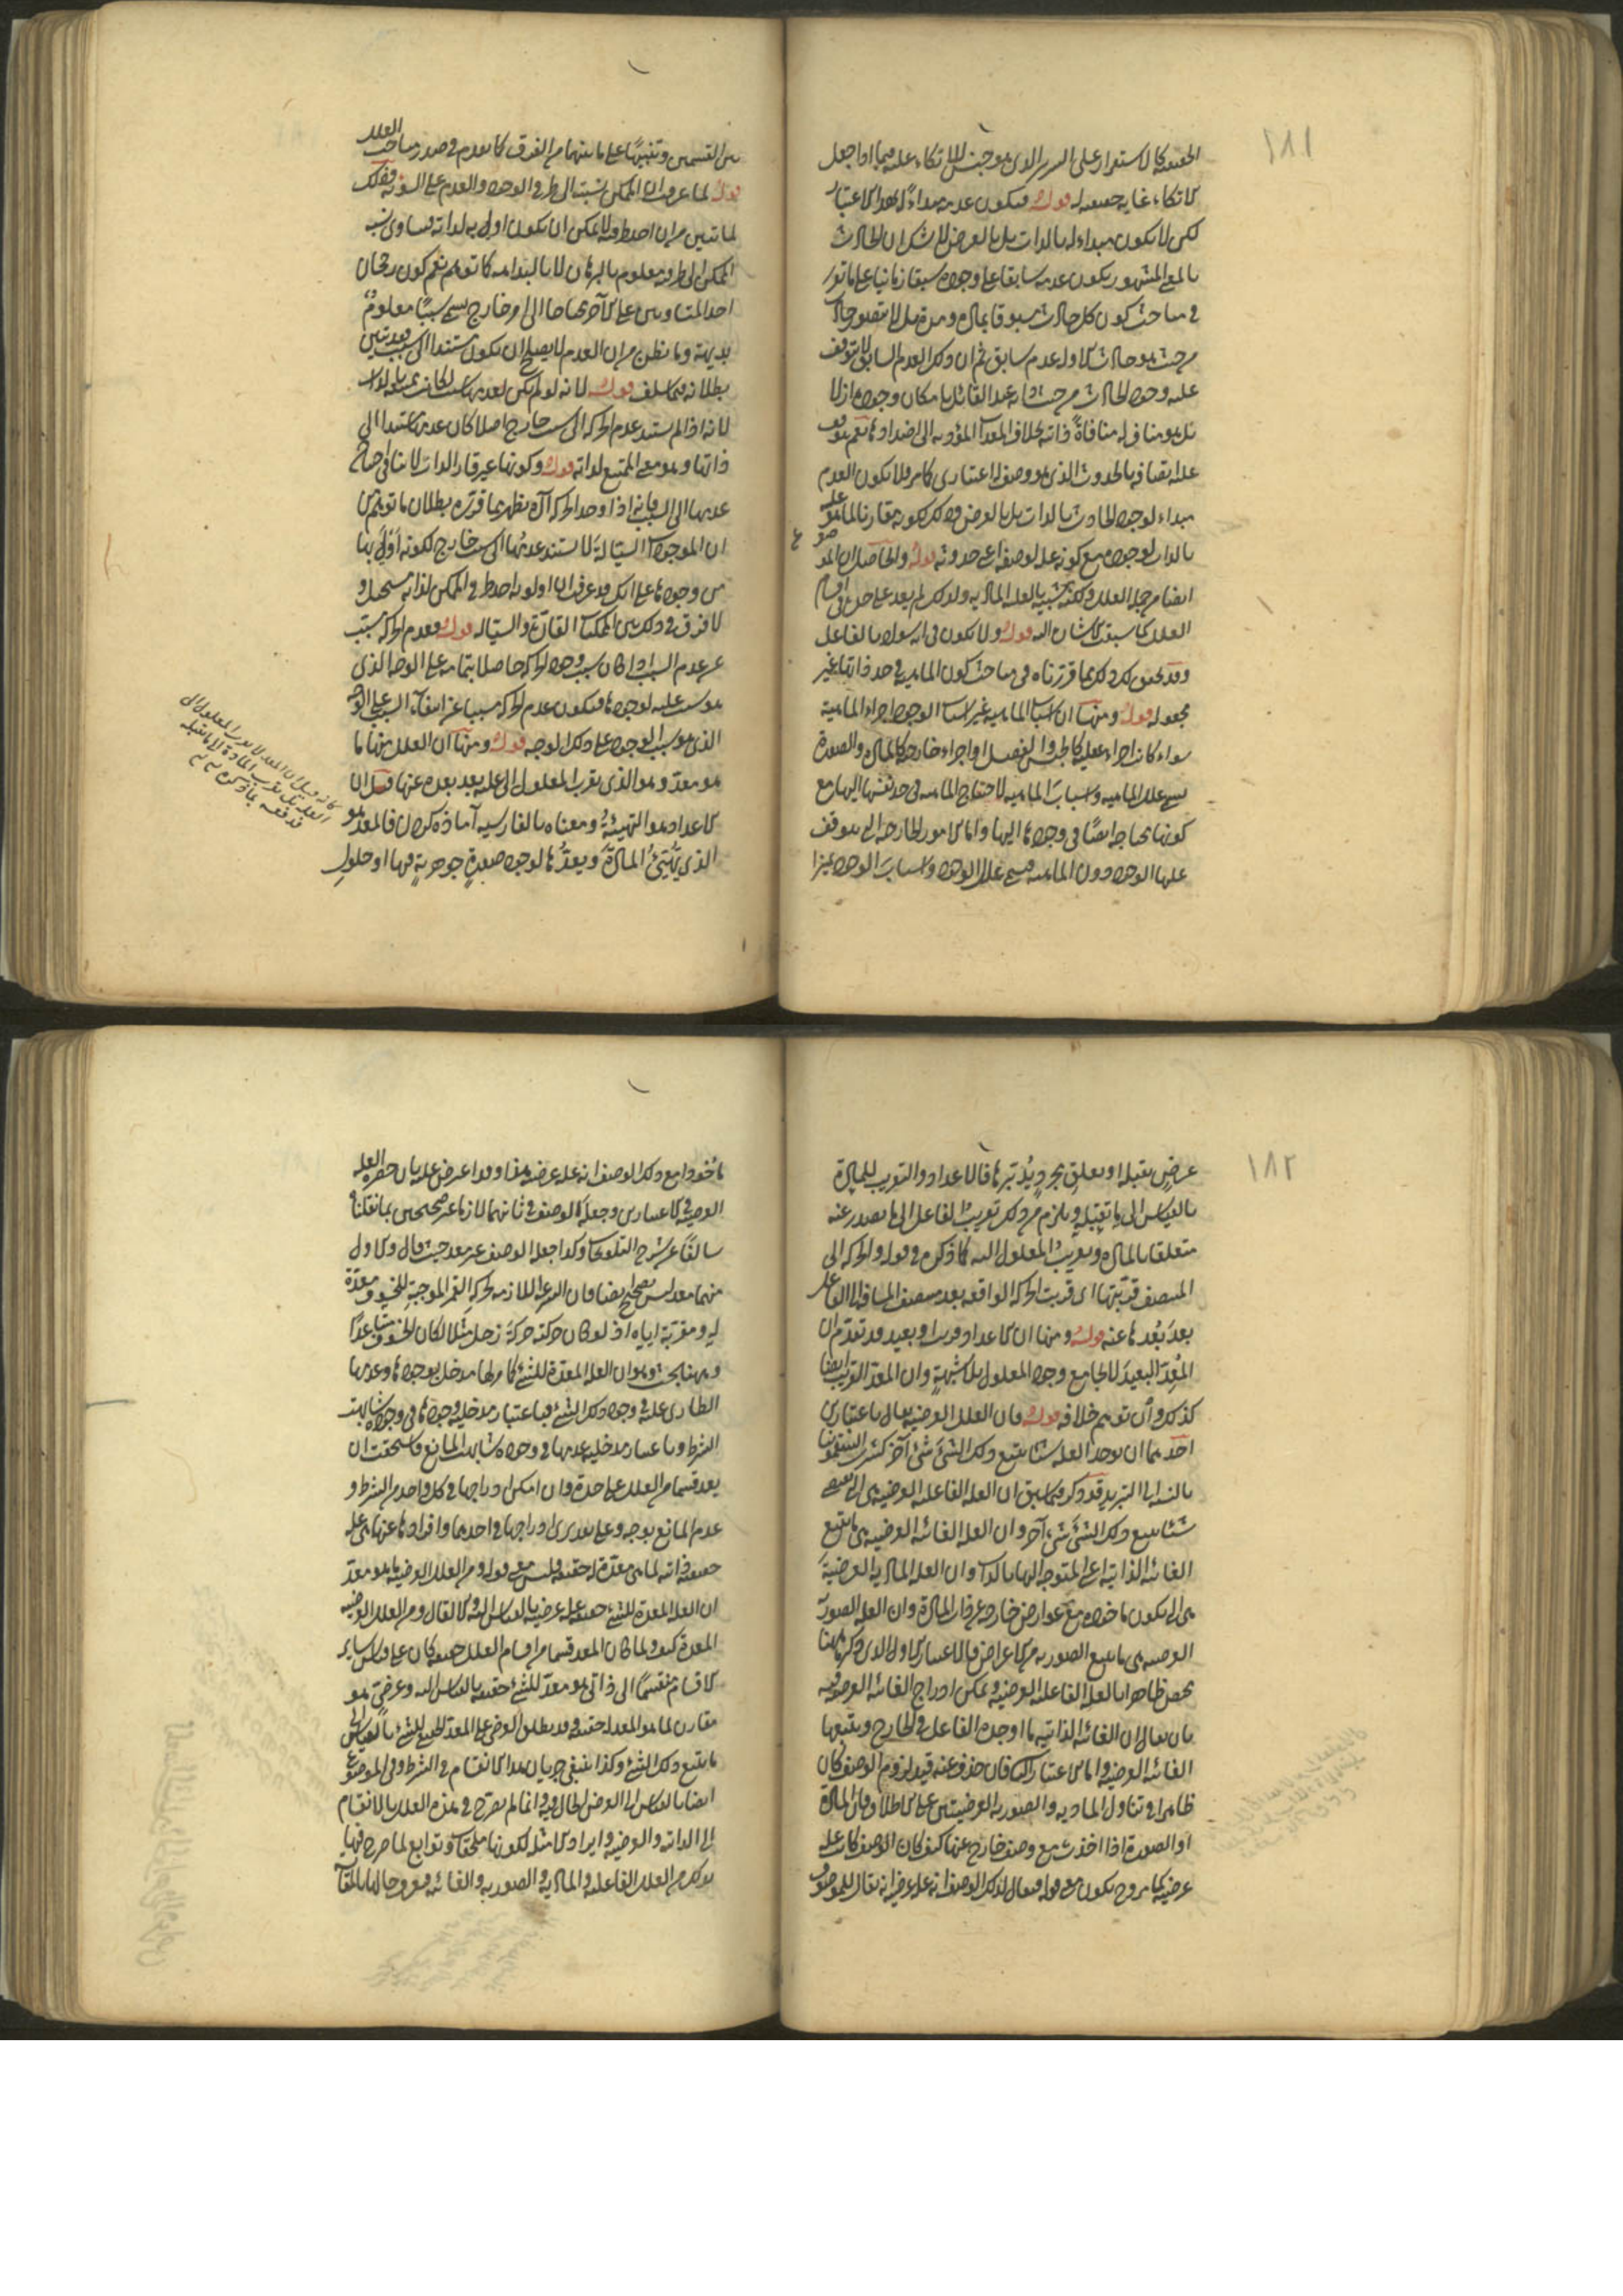 ١٨١
الحقيقة كالاستقرار على السرير الذى هو جنس للاتكاء علة فيما اذا جعل
الاتكاء غاية حقيقة له قوله فيكون عدمه مبداء له بهذا الاعتبار
لكن لا يكون مبداء له بالذات بل بالعرض لا شك ان الحادث
بالمعنى المشهور يكون عدمه سابقا على وجوده سبقا زمانيا على ما تقرر
فى مباحث كون كل حادث مسبوقا بمادة ومدة بل لا يتصور حادث
من حيث هو حادث الا وله عدم سابق ثم ان ذلك العدم السابق لا يتوقف
عليه وجود الحادث من حيث ذاته عند القائل بامكان وجوده ازلا
بل هو مناف له منافاة ذاتية بخلاف المعدات المؤدية الى اضدادها نعم يتوقف
عليه اتصافه بالحدوث الذى هو وصف له اعتبارى كما مر فلا يكون العدم
مبداء لوجود الحادث بالذات بل بالعرض وذلك لكونه مقارنا لما هو علة
بالذات لوجوده مع كونه علة لوصفه اعنى حدوثه قوله والحاصل ان الموضوع
ايضا من جملة العلل ولكنه شبيه بالعلة المادية ولذلك لم يعد على حدة فى اقسام
العلل كما سبقت الاشارة اليه قوله ولا يكون فى انه سواد بالفاعل
وقد تحقق لك ذلك بما قررناه فى مباحث كون الماهية فى حد ذاتها غير
مجعولة قوله ومنها ان اسباب الماهية غير اسباب الوجود اجزاء الماهية
سواء كانت اجزاء عقلية كالجنس والفصل او اجزاء خارجية كالمادة والصورة
تسمى علل الماهية واسباب الماهية لاحتياج الماهية فى حد نفسها اليها مع
كونها محتاجة ايضا فى وجودها اليها واما الامور الخارجة التى يتوقف
عليها الوجود دون الماهية فتسمى علل الوجود واسباب الوجود تميزا
بين القسمين وتنبيها على ما بينهما من الفرق كما تقدم فى صدر مباحث العلل
قوله لما عرفت ان الممكن نسبته الى طرفى الوجود والعدم على السوية وذلك
لما تبين من ان احد طرفيه لا يمكن ان يكون اولى به لذاته فتساوى نسبة
الممكن الى طرفيه معلوم بالبرهان لا بالبداهة كما توهم نعم كون رجحان
احد المتساويين على الآخر محتاجا الى امر خارج يسمى سببا معلوم
بديهة وما يظن من ان العدم لا يصلح ان يكون مستندا الى سبب فقد تبين
بطلانه فيما سلف قوله لانه لو لم يكن لعدمها سبب لكانت ممتنعة لذاتها
لانه اذا لم يستند عدم الحركة الى سبب خارج اصلا كان عدمها مستندا الى
ذاتها وهو معنى الممتنع لذاته قوله وكونها غير قارة الذات لا ينافى احتياج
عدمها الى السبب فانه اذا وجد الحركة آه يظهر بما قرره بطلان ما توهم من
ان الموجودات السيالة لا يستند عدمها الى سبب خارج لكونه اولى بها
من وجودها على انك قد عرفت ان اولوية احد طرفى الممكن لذاته مستحيل و
لا فرق فى ذلك بين الممكنات القارة والسيالة قوله فعدم الحركة مسبب
عن عدم السبب اذا كان سبب وجود الحركة حاصلا بتمامه على الوجه الذى
هو سبب عليه لوجودها فيكون عدم الحركة مسببا عن انتفاء السبب على الوجه
الذى هو سبب الوجود على ذلك الوجه قوله ومنها ان العلل منها ما
هو معد وهو الذى يقرب المعلول الى علته بعد بعده عنها قيل ان
الاعداد هو التهيئة ومعناه بالفارسية آماده كردن فالمعد هو
الذى يهيئ المادة ويعدها لوجود صورة جوهرية فيها او حلول
كانه قيل ان المعد لا يقرب المعلول الى
العلة بل يقرب المادة الى ما تقبله
فدفعه بما ذكره
١٨٢
عرض يقبله او تعلق مجرد يدبرها فالاعداد والتقريب للمادة
بالقياس الى ما تقبله ويلزم من ذلك تقريب الفاعل الى ما يصدر عنه
متعلقا بالمادة وتقريب المعلول اليه كما ذكره فى قوله والحركة الى
المنتصف قربتها اى قربت الحركة الواقعة بعد منتصف المسافة الى الفاعل
بعد بعدها عنه قوله ومنها ان الاعداد قريب وبعيد قد تقدم ان
المعد البعيد لا يجامع وجود المعلول بلا شبهة وان المعد القريب ايضا
كذلك وان توهم خلافه قوله فان العلل العرضية يقال باعتبارين
احدهما ان يوجد العلة شيئا يتبع ذلك الشئ شئ آخر كشرب السقمونيا
بالنسبة الى التبريد قد ذكر فيما سبق ان العلة الفاعلية العرضية هى التى تقتضى
شيئا يتبع ذلك الشئ شئ آخر وان العلة الغائية العرضية هى ما يتبع
الغاية الذاتية اعنى المتوجه اليها بالذات وان العلة المادية العرضية
هى التى يكون مأخوذة مع عوارض خارجة عن ذات المادة وان العلة الصورية
العرضية هى ما يتبع الصورية من الاعراض فالاعتبار الاول الذى ذكره ههنا
يخص ظاهرا بالعلة الفاعلية العرضية ويمكن ادراج الغائية العرضية فيه
بان يقال ان الغاية الذاتية ما اوجده الفاعل فى الخارج ويتبعها
الغاية العرضية واما الاعتبار الثانى فان حذف عنه قيد لزوم الوصف كان
ظاهرا فى تناول المادية والصورية العرضيتين على الاطلاق فان المادة
او الصورة اذا اخذت مع وصف خارج عنها كيف كان الوصف كانت علة
عرضية كما مر وح يكون معنى قوله فيقال لذلك الوصف انه علة عرضية انه يقال للموصوف
مأخوذا مع ذلك الوصف انه علة عرضية هذا وقد اعترض عليه بان حصره العلة
العرضية فى الاعتبارين وجعله الوصف فى ثانيهما لازما غير صحيحين بما نقلنا
سالفا عن شرح التلويحات وكذا جعله الوصف غير معد حيث قال والاول
منهما معد ليس بصحيح ايضا فان السرعة اللازمة لحركة القمر الموجبة للخسوف معدة
له ومقربة اياه اذ لو كان حركته حركة زحل مثلا لكان الخسوف متباعدا
وههنا بحث وهو ان العلة المعدة للشئ كما مر لها مدخل بوجودها وعدمها
الطارى عليه فى وجود ذلك الشئ فباعتبار مدخلية وجودها فى وجوده شابهت
الشرط وباعتبار مدخلية عدمها فى وجوده شابهت المانع فاستحقت ان
يعد قسما من العلل على حدة وان امكن ادراجها فى كل واحد من الشرط و
عدم المانع بوجه وعلى تقديرى ادراجها فى احدهما وافرادها عنهما هى علة
حقيقة ذاتية لما هى معدة له حقيقة فليس معنى قوله ومن العلل العرضية ما هو معد
ان العلة المعدة للشئ حقيقة علة عرضية بالقياس اليه والا لقال ومن العلل العرضية
المعدة كيف ولما كان المعد قسما من اقسام العلل حقيقة كان على قياس سائر
الاقسام منقسما الى ذاتى هو معد للشئ حقيقة بالقياس اليه وعرضى هو
مقارن لما هو المعد له حقيقة وقد يطلق العرضى على المعد الحقيقى للشئ بالقياس الى
ما يتبع ذلك الشئ وكذا ينبغى جريان هذا الانقسام فى الشرط وفى الموضوع
ايضا بالقياس الى العرض الحال فيه وانما لم يصرح فى هذه العلل بالانقسام
الى الذاتية والعرضية وايراد الامثلة لكونها ملحقات وتوابع لما صرح فيها
بذلك من العلل الفاعلية والمادية والصورية والغائية فيعرف حالها بالمقايسة